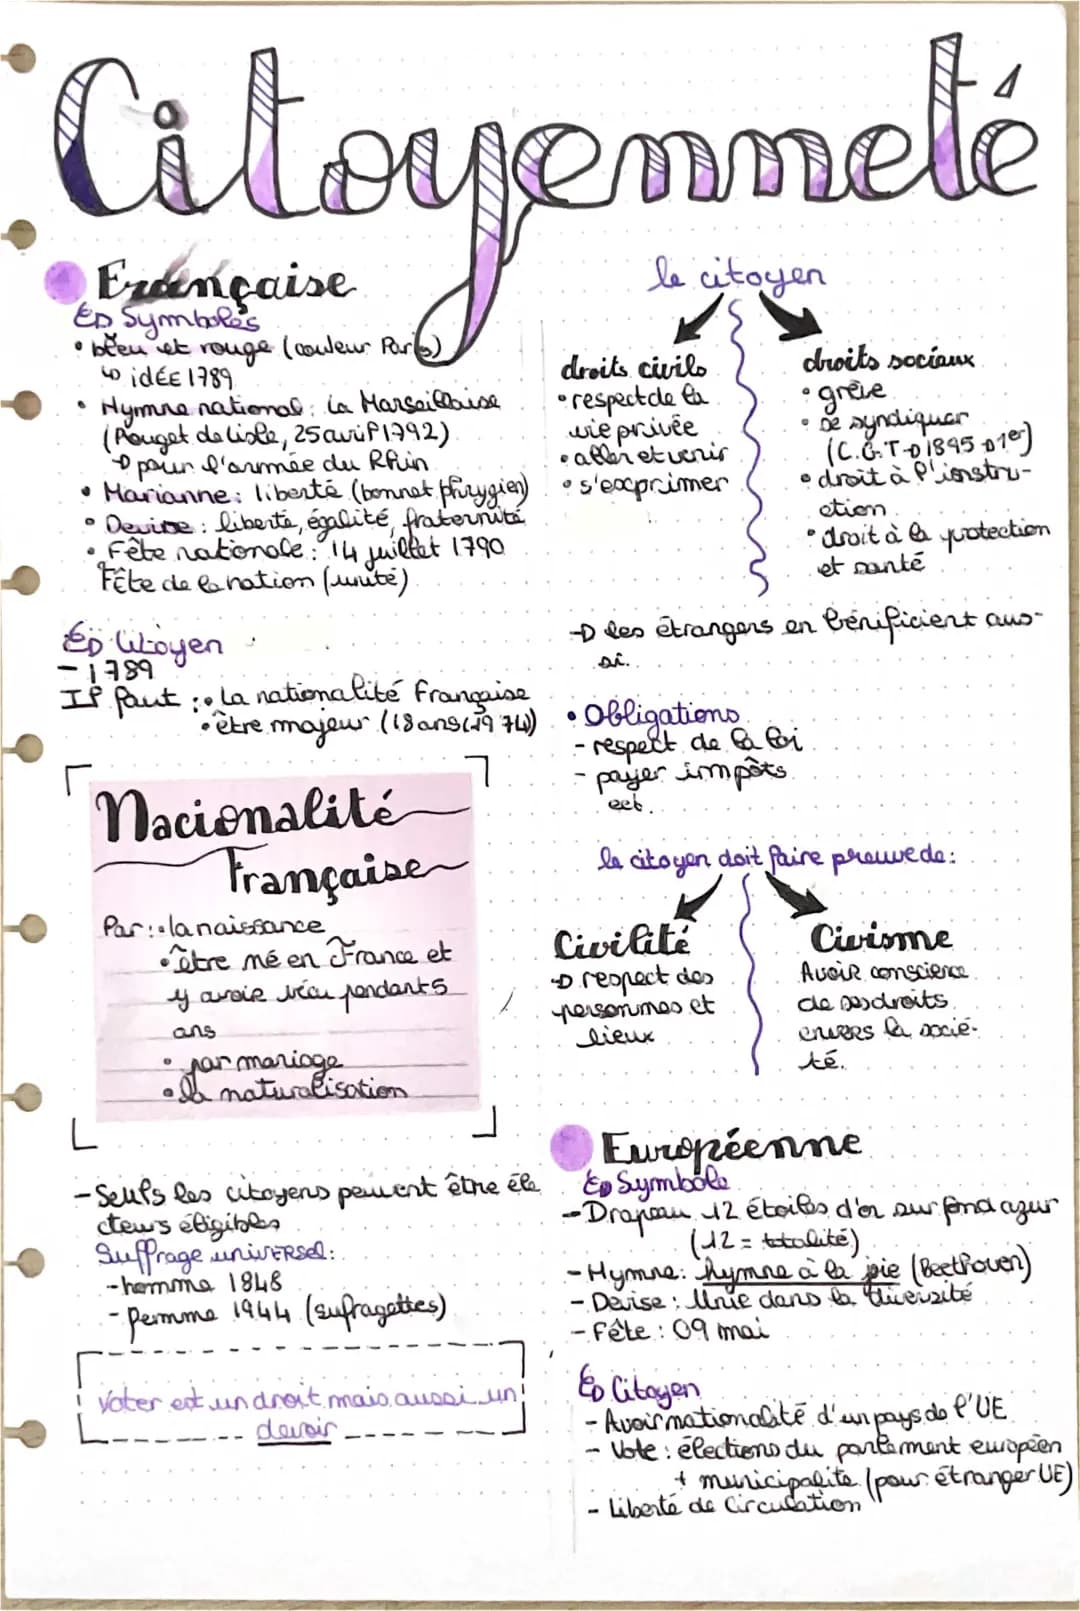 Citoyenneté
Française
Symboles
• bleu et rouge (couleur Paris)
↳ idée 1789
• Hymne national : la Marseillaise
(Rouget de Lisle, 25 avril 1792)
→ pour l'armée du Rhin
• Marianne : liberté (bonnet phrygien)
• Devise : liberté, égalité, fraternité
• Fête nationale : 14 juillet 1790
Fête de la nation (unité)
Citoyen
- 1789
Il faut : • la nationalité française
• être majeur (18 ans (1974)
Nacionalité
Française
Par : • la naissance
• être né en France et
y avoir vécu pendant 5
ans
• par mariage
• la naturalisation
- Seuls les citoyens peuvent être éle
cteurs éligibles
Suffrage universel :
- homme 1848
- femme 1944 (sufragettes)
Voter est un droit mais aussi un
devoir
le citoyen
droits civils
• respect de la
vie privée
• aller et venir
• s'exprimer
droits sociaux
• grève
• se syndiquer
(C.G.T → 1895 → 1er)
• droit à l'instru-
ction
• droit à la protection
et santé
→ les étrangers en bénificient aus-
si.
• Obligations
- respect de la loi
- payer impôts
ect.
le citoyen doit faire preuve de :
Civilité
→ respect des
personnes et
lieux
Civisme
Avoir conscience
de ses droits
envers la socié-
té.
Européenne
Symbole
- Drapeau 12 étoiles d'or sur fond azur
(12 = totalité)
- Hymne : hymne à la joie (Beethoven)
- Devise : Unie dans la diversité
- Fête : 09 mai
Citoyen
- Avoir nationalité d'un pays de l'UE
- Vote : élections du parlement européen
+ municipalité (pour étranger UE)
- Liberté de circulation